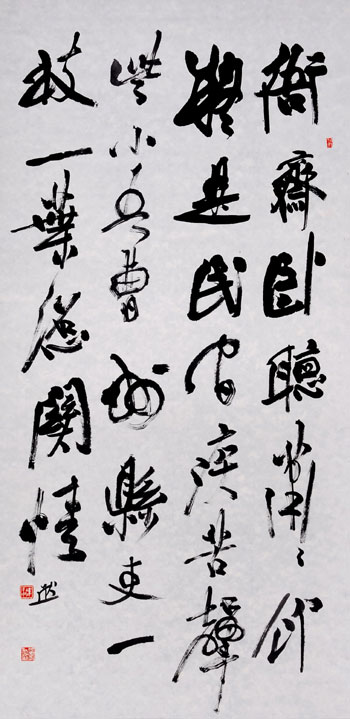 衙齋臥聽蕭々竹
疑是民间疾苦聲
些小吾曹州縣吏一
枝一葉總關情